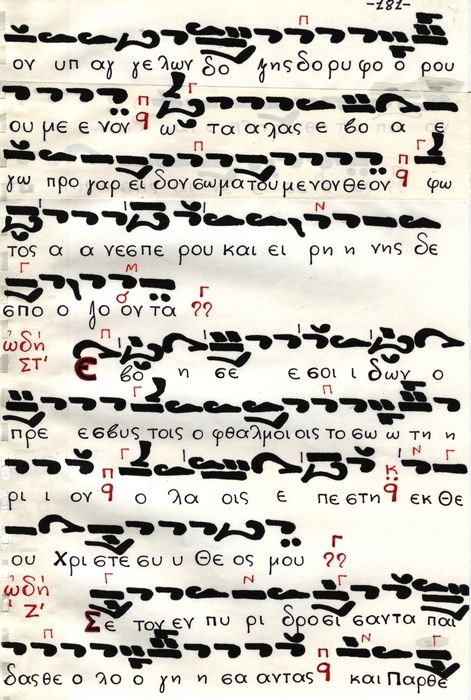 -181-
ον υπ αγ γελων δο ξης δο ρυ φο ο ρου
ου με ε νον ω τα α λας ε βο α ε
γω προ γαρ ει δον σωματουμενονθεον φω
τος α α νεσπε ρου και ει ρη η νης δε
σπο ο ζο ον τα
ὠδὴ ΣΤ' Ε βο η σε ε σοι ι δων ο
πρε ε σβυς τοις ο φθαλμοι οις το σω ω τη η
ρι ι ον ο λα οις ε πε στη εκ Θε
ου Χρι στε συ υ Θε ος μου
ὠδὴ Ζ' Σε τον εν πυ ρι δροσι σαντα παι
δας θε ο λο ο γη η σα αντας και Παρθε